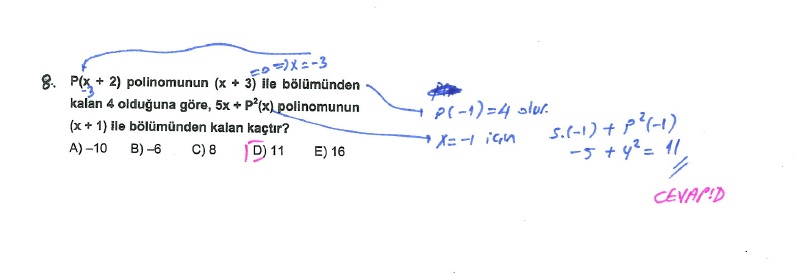 =0 => x = -3
8. P(x + 2) polinomunun (x + 3) ile bölümünden
-3
kalan 4 olduğuna göre, 5x + P²(x) polinomunun
(x + 1) ile bölümünden kalan kaçtır?
A) –10 B) –6 C) 8 D) 11 E) 16
P(-1) = 4 olur.
x = -1 için
5.(-1) + P²(-1)
-5 + 4² = 11
CEVAP:D